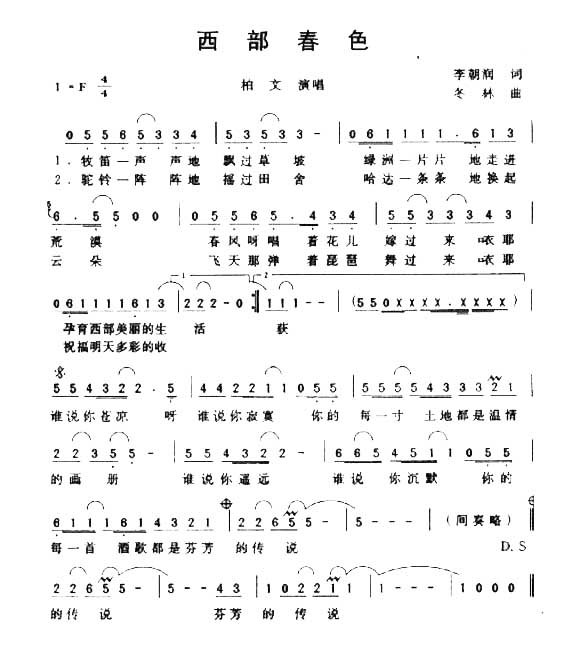 西部春色
1=F 4/4 柏文 演唱 李朝润 词
冬林 曲
0 5 5 6 5 3 3 4 | 5 3 5 3 5 - | 0 6 1 1 1 1 . 6 1 3 |
1.牧笛一声 声地 飘过草坡 绿洲一片片 地走进
2.驼铃一阵 阵地 摇过田舍 哈达一条条 地换起
6 . 5 5 0 0 | 0 5 5 5 5 5 3 5 | 2 3 5 3 2 3 4 3 |
荒漠 春风呀唱 着花儿 嫁过来 衣耶
云朵 飞天那弹 着琵琶 舞过来 衣耶
1 2
0 6 1 1 1 1 6 1 3 | 2 2 2 - 0 :| 1 1 1 - - | (5 5 0 X X X X . X X X X X) |
孕育西部美丽的生 活 获
祝福明天多彩的收
5 5 4 3 2 2 . 5 | 4 4 2 2 1 1 1 0 5 5 | 1 2 3 5 4 3 3 3 2 1 |
谁说你苍凉 呀 谁说你寂寞 你的 每一寸 土地都是温情
2 2 3 5 5 - | 5 5 4 3 2 2 - | 6 6 5 4 5 1 1 0 5 5 |
的画 册 谁说你遥远 谁说 你沉默 你的
6 1 1 1 6 1 4 3 2 1 | 2 2 6 5 5 - | 5 - - - | (间奏略) |
每一首 酒歌都是芬芳 的传 说 D.S
2 2 6 5 5 - | 5 - - 4 3 | 1 0 2 2 1 1 - | 1 0 0 0 ||
的传 说 芬芳的传 说